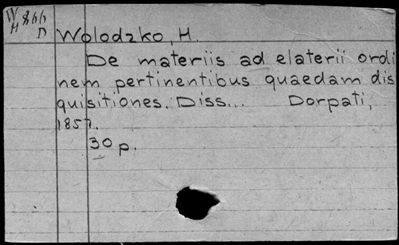 W 866
H D
Wolodzko, H.
De materiis ad elaterii ordi
nem pertinentibus quaedam dis
quisitiones. Diss... Dorpati,
1857.
30 p.